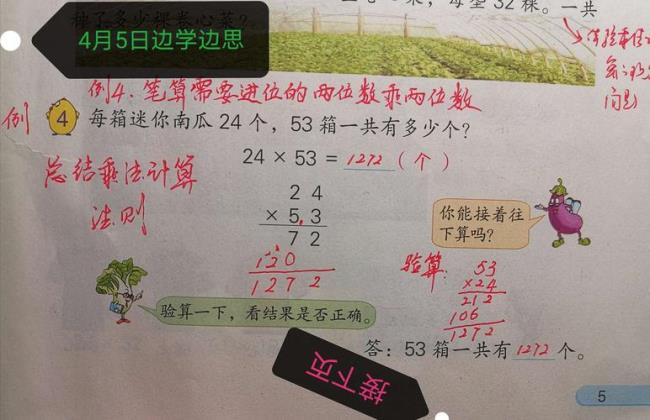 种了多少棵卷心菜?
每垄32棵。一共
4月5日边学边思
例4.笔算需要进位的两位数乘两位数
例 4 每箱迷你南瓜24个,53箱一共有多少个?
24×53=1272(个)
总结乘法计算
法则
24
×53
72
120
1272
你能接着往
下算吗?
验算:
53
×24
212
106
1272
验算一下,看结果是否正确。
答:53箱一共有1272个。
接下页
5